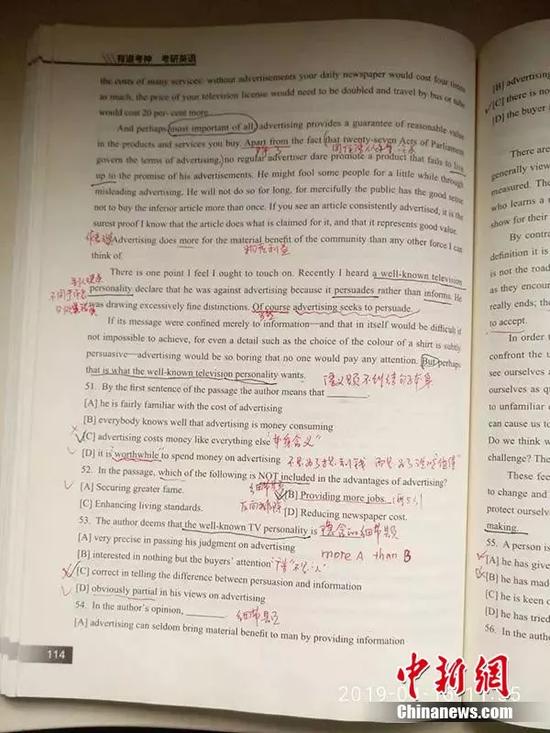 有道考神 考研英语
the costs of many services: without advertisements your daily newspaper would cost four times
as much, the price of your television license would need to be doubled and travel by bus or tube
would cost 20 per-cent more.
And perhaps most important of all advertising provides a guarantee of reasonable value
in the products and services you buy. Apart from the fact that twenty-seven Acts of Parliament
govern the terms of advertising, no regular advertiser dare promote a product that fails to live
up to the promise of his advertisements. He might fool some people for a little while through
misleading advertising. He will not do so for long, for mercifully the public has the good sense
not to buy the inferior article more than once. If you see an article consistently advertised, it is the
surest proof I know that the article does what is claimed for it, and that it represents good value.
Advertising does more for the material benefit of the community than any other force I can
think of.
There is one point I feel I ought to touch on. Recently I heard a well-known television
personality declare that he was against advertising because it persuades rather than informs. He
was drawing excessively fine distinctions. Of course advertising seeks to persuade.
If its message were confined merely to information—and that in itself would be difficult if
not impossible to achieve, for even a detail such as the choice of the colour of a shirt is subtly
persuasive—advertising would be so boring that no one would pay any attention. But perhaps
that is what the well-known television personality wants.
51. By the first sentence of the passage the author means that
[A] he is fairly familiar with the cost of advertising
[B] everybody knows well that advertising is money consuming
[C] advertising costs money like everything else
[D] it is worthwhile to spend money on advertising
52. In the passage, which of the following is NOT included in the advantages of advertising?
细节题
[A] Securing greater fame.
[B] Providing more jobs.
[C] Enhancing living standards.
[D] Reducing newspaper cost.
53. The author deems that the well-known TV personality is
[A] very precise in passing his judgment on advertising
more A than B
[B] interested in nothing but the buyers' attention
[C] correct in telling the difference between persuasion and information
[D] obviously partial in his views on advertising
54. In the author's opinion,
细节题
[A] advertising can seldom bring material benefit to man by providing information
114
[B] advertising
[C] there is no
[D] the buyer
There are
generally view
measured. The
who learns a
show for their
By contra
definition it is
is not the road
as they encoun
really ends; the
to accept.
In order t
confront the u
see ourselves a
ourselves as qu
to unfamiliar
can cause us to
Do we think w
challenge? The
These feel
to change and
protect ourselv
making.
55. A person is
[A] he has give
[B] he has mad
[C] he is keen o
[D] he has tried
56. In the autho
中新网
Chinanews.com